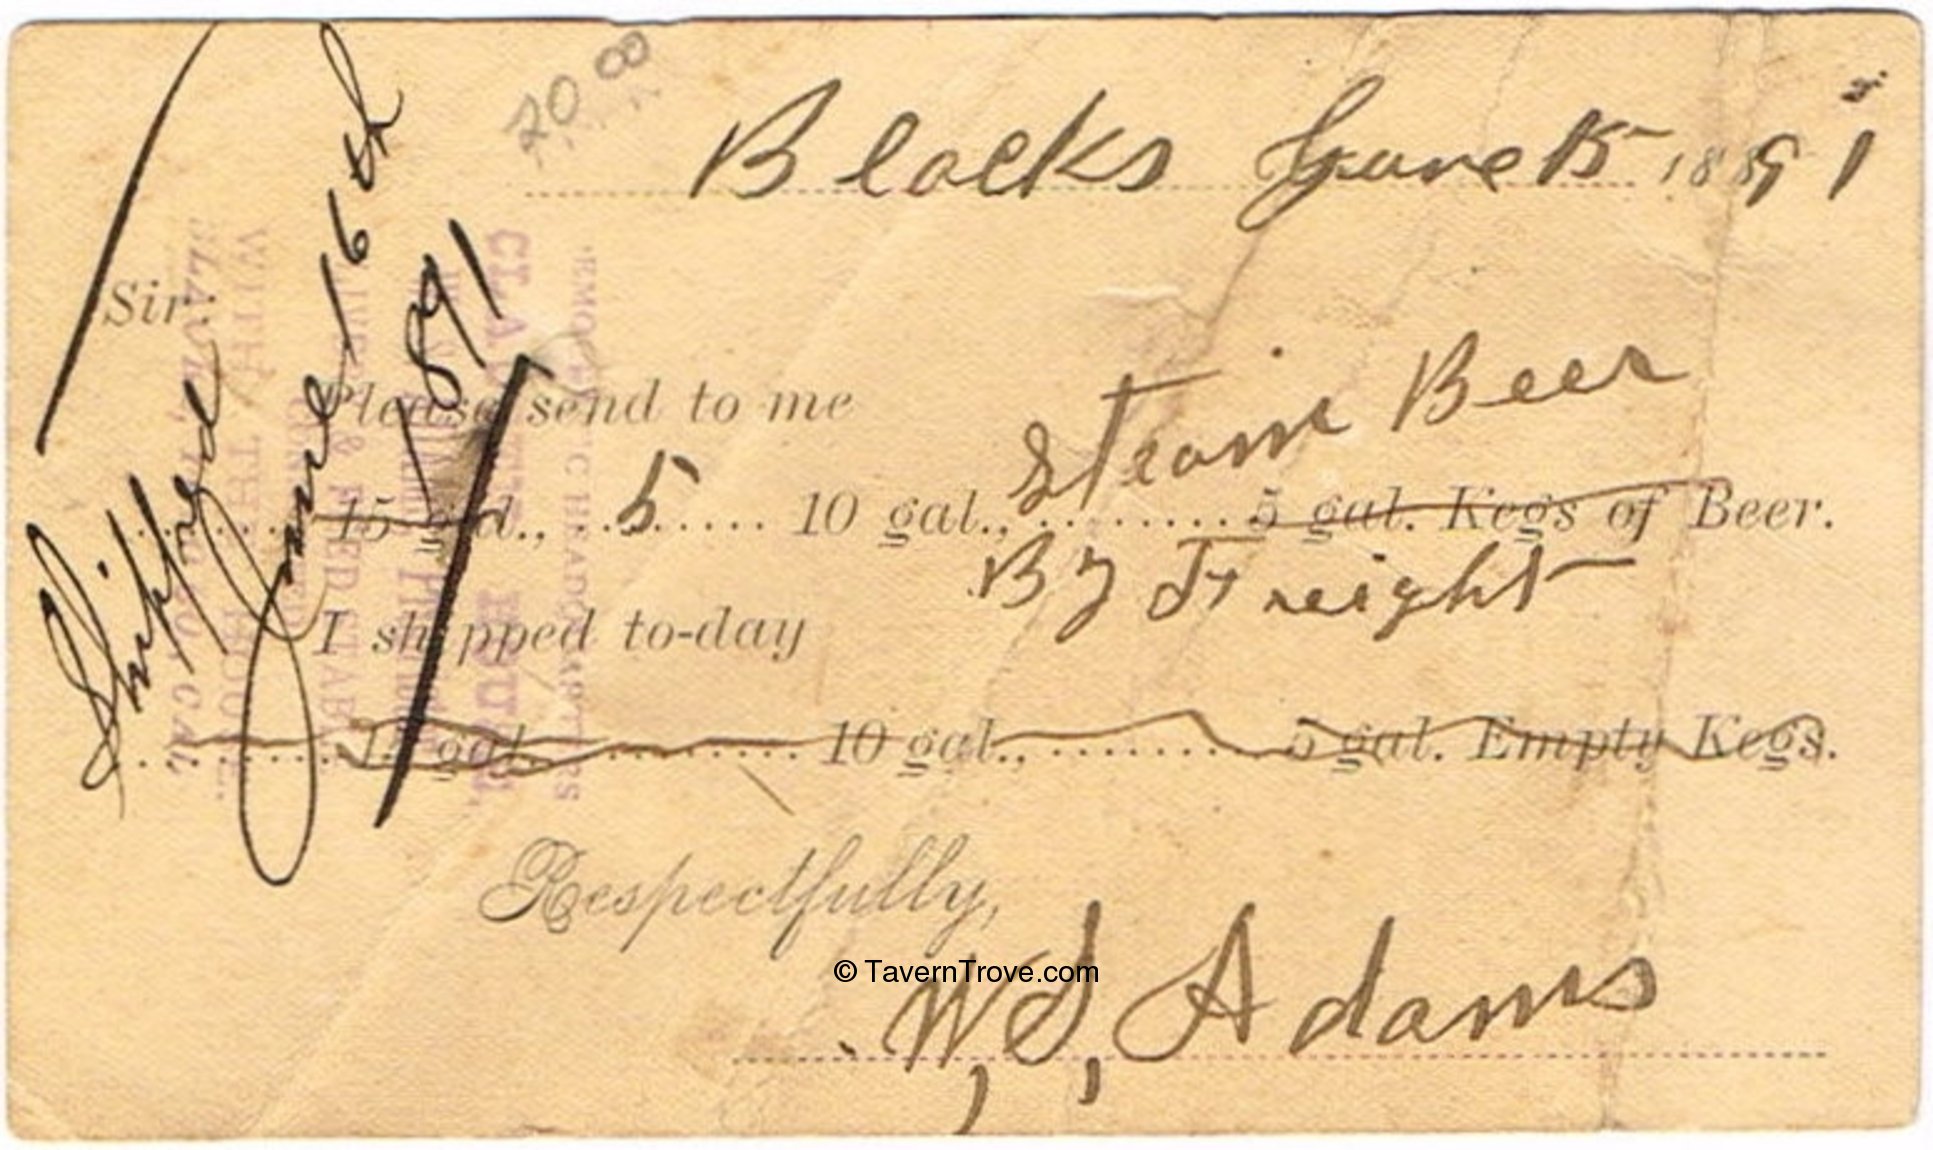 20 00
Blacks June 15 1891
Sir:
Please send to me
Steam Beer
15 gal., 5 10 gal., 5 gal. Kegs of Beer.
By Freight
I shipped to-day
15 gal., 10 gal., 5 gal. Empty Kegs.
Respectfully,
W, S, Adams
Shipped
June 16th
1891
HEADQUARTERS
& FEED STABLE
WITH THE HOUSE.
CAL
© TavernTrove.com